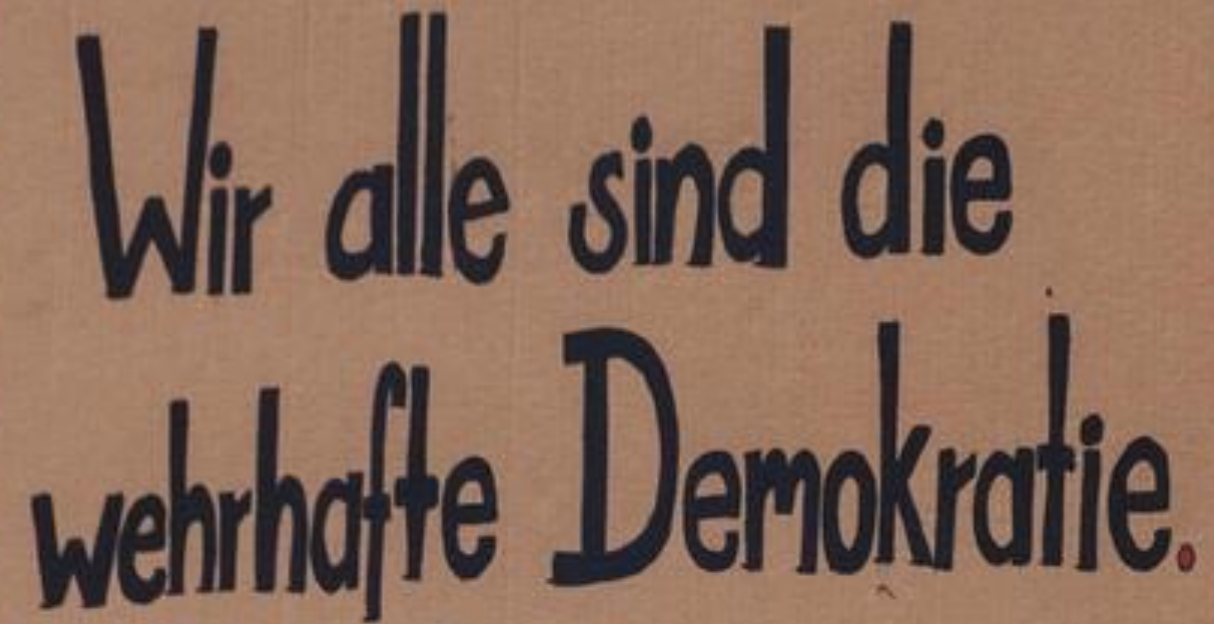 Wir alle sind die
wehrhafte Demokratie.